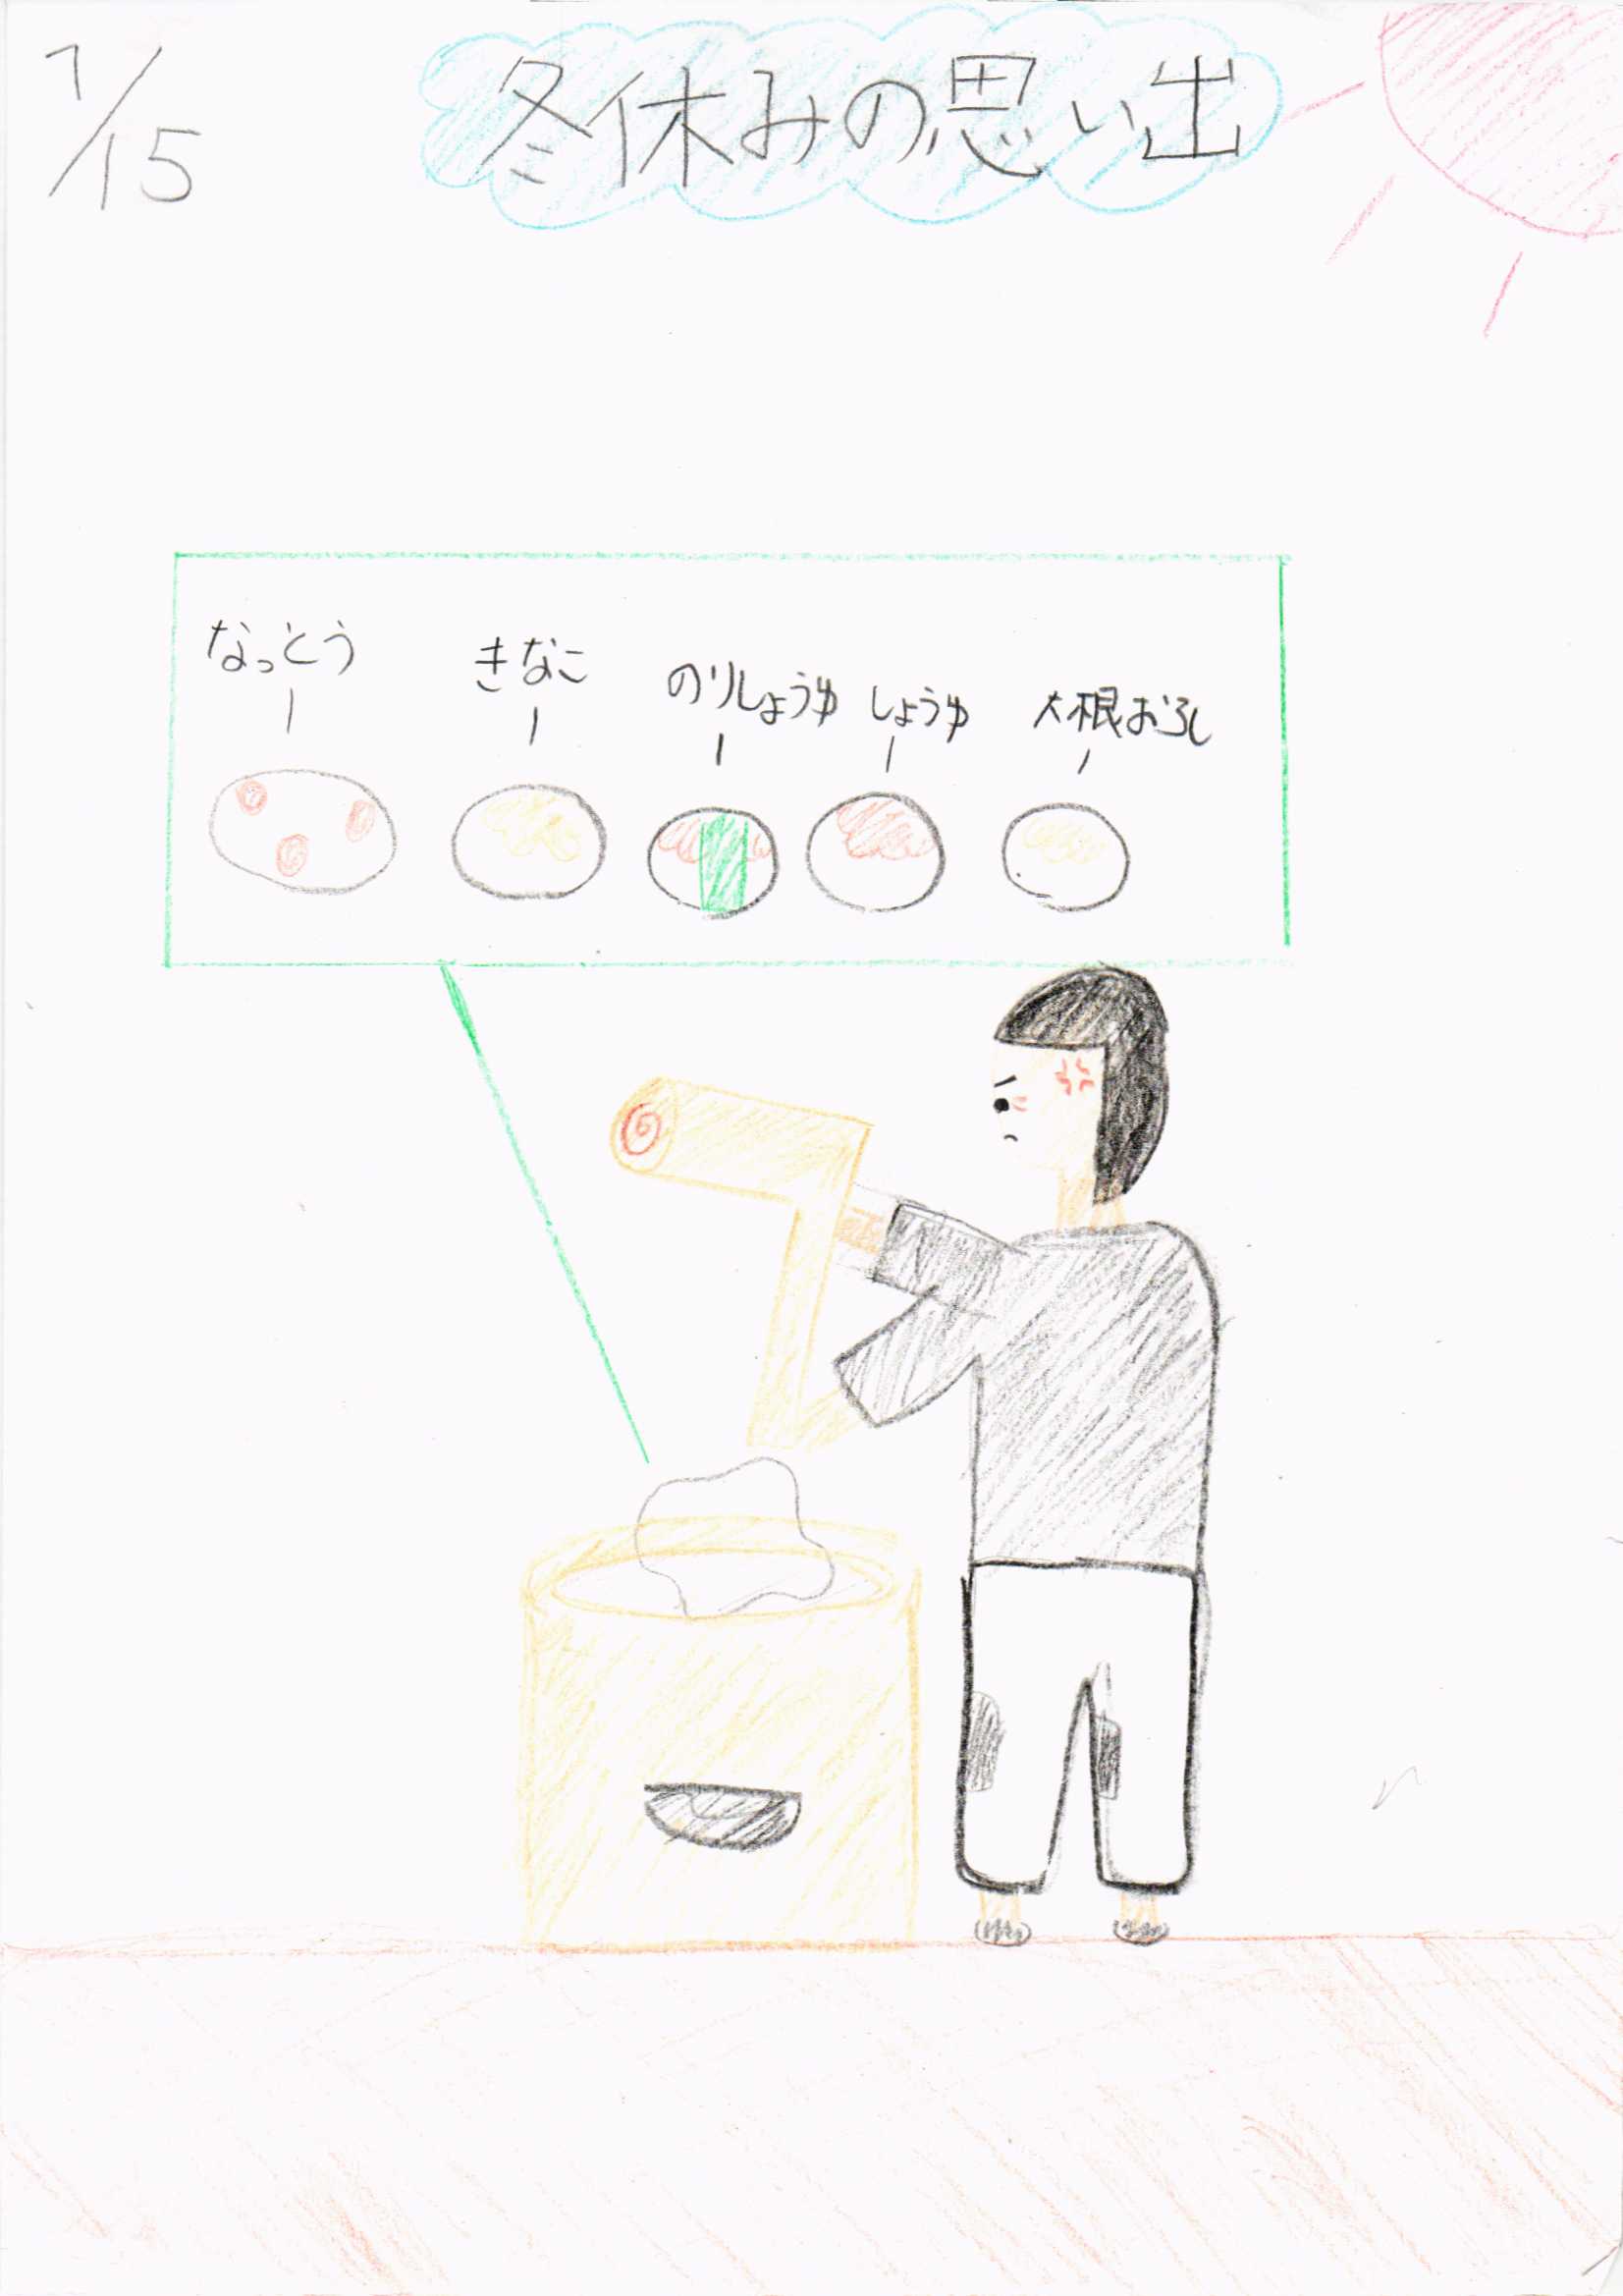 1/15
冬休みの思い出
なっとう
きなこ
のりしょうゆ
しょうゆ
大根おろし